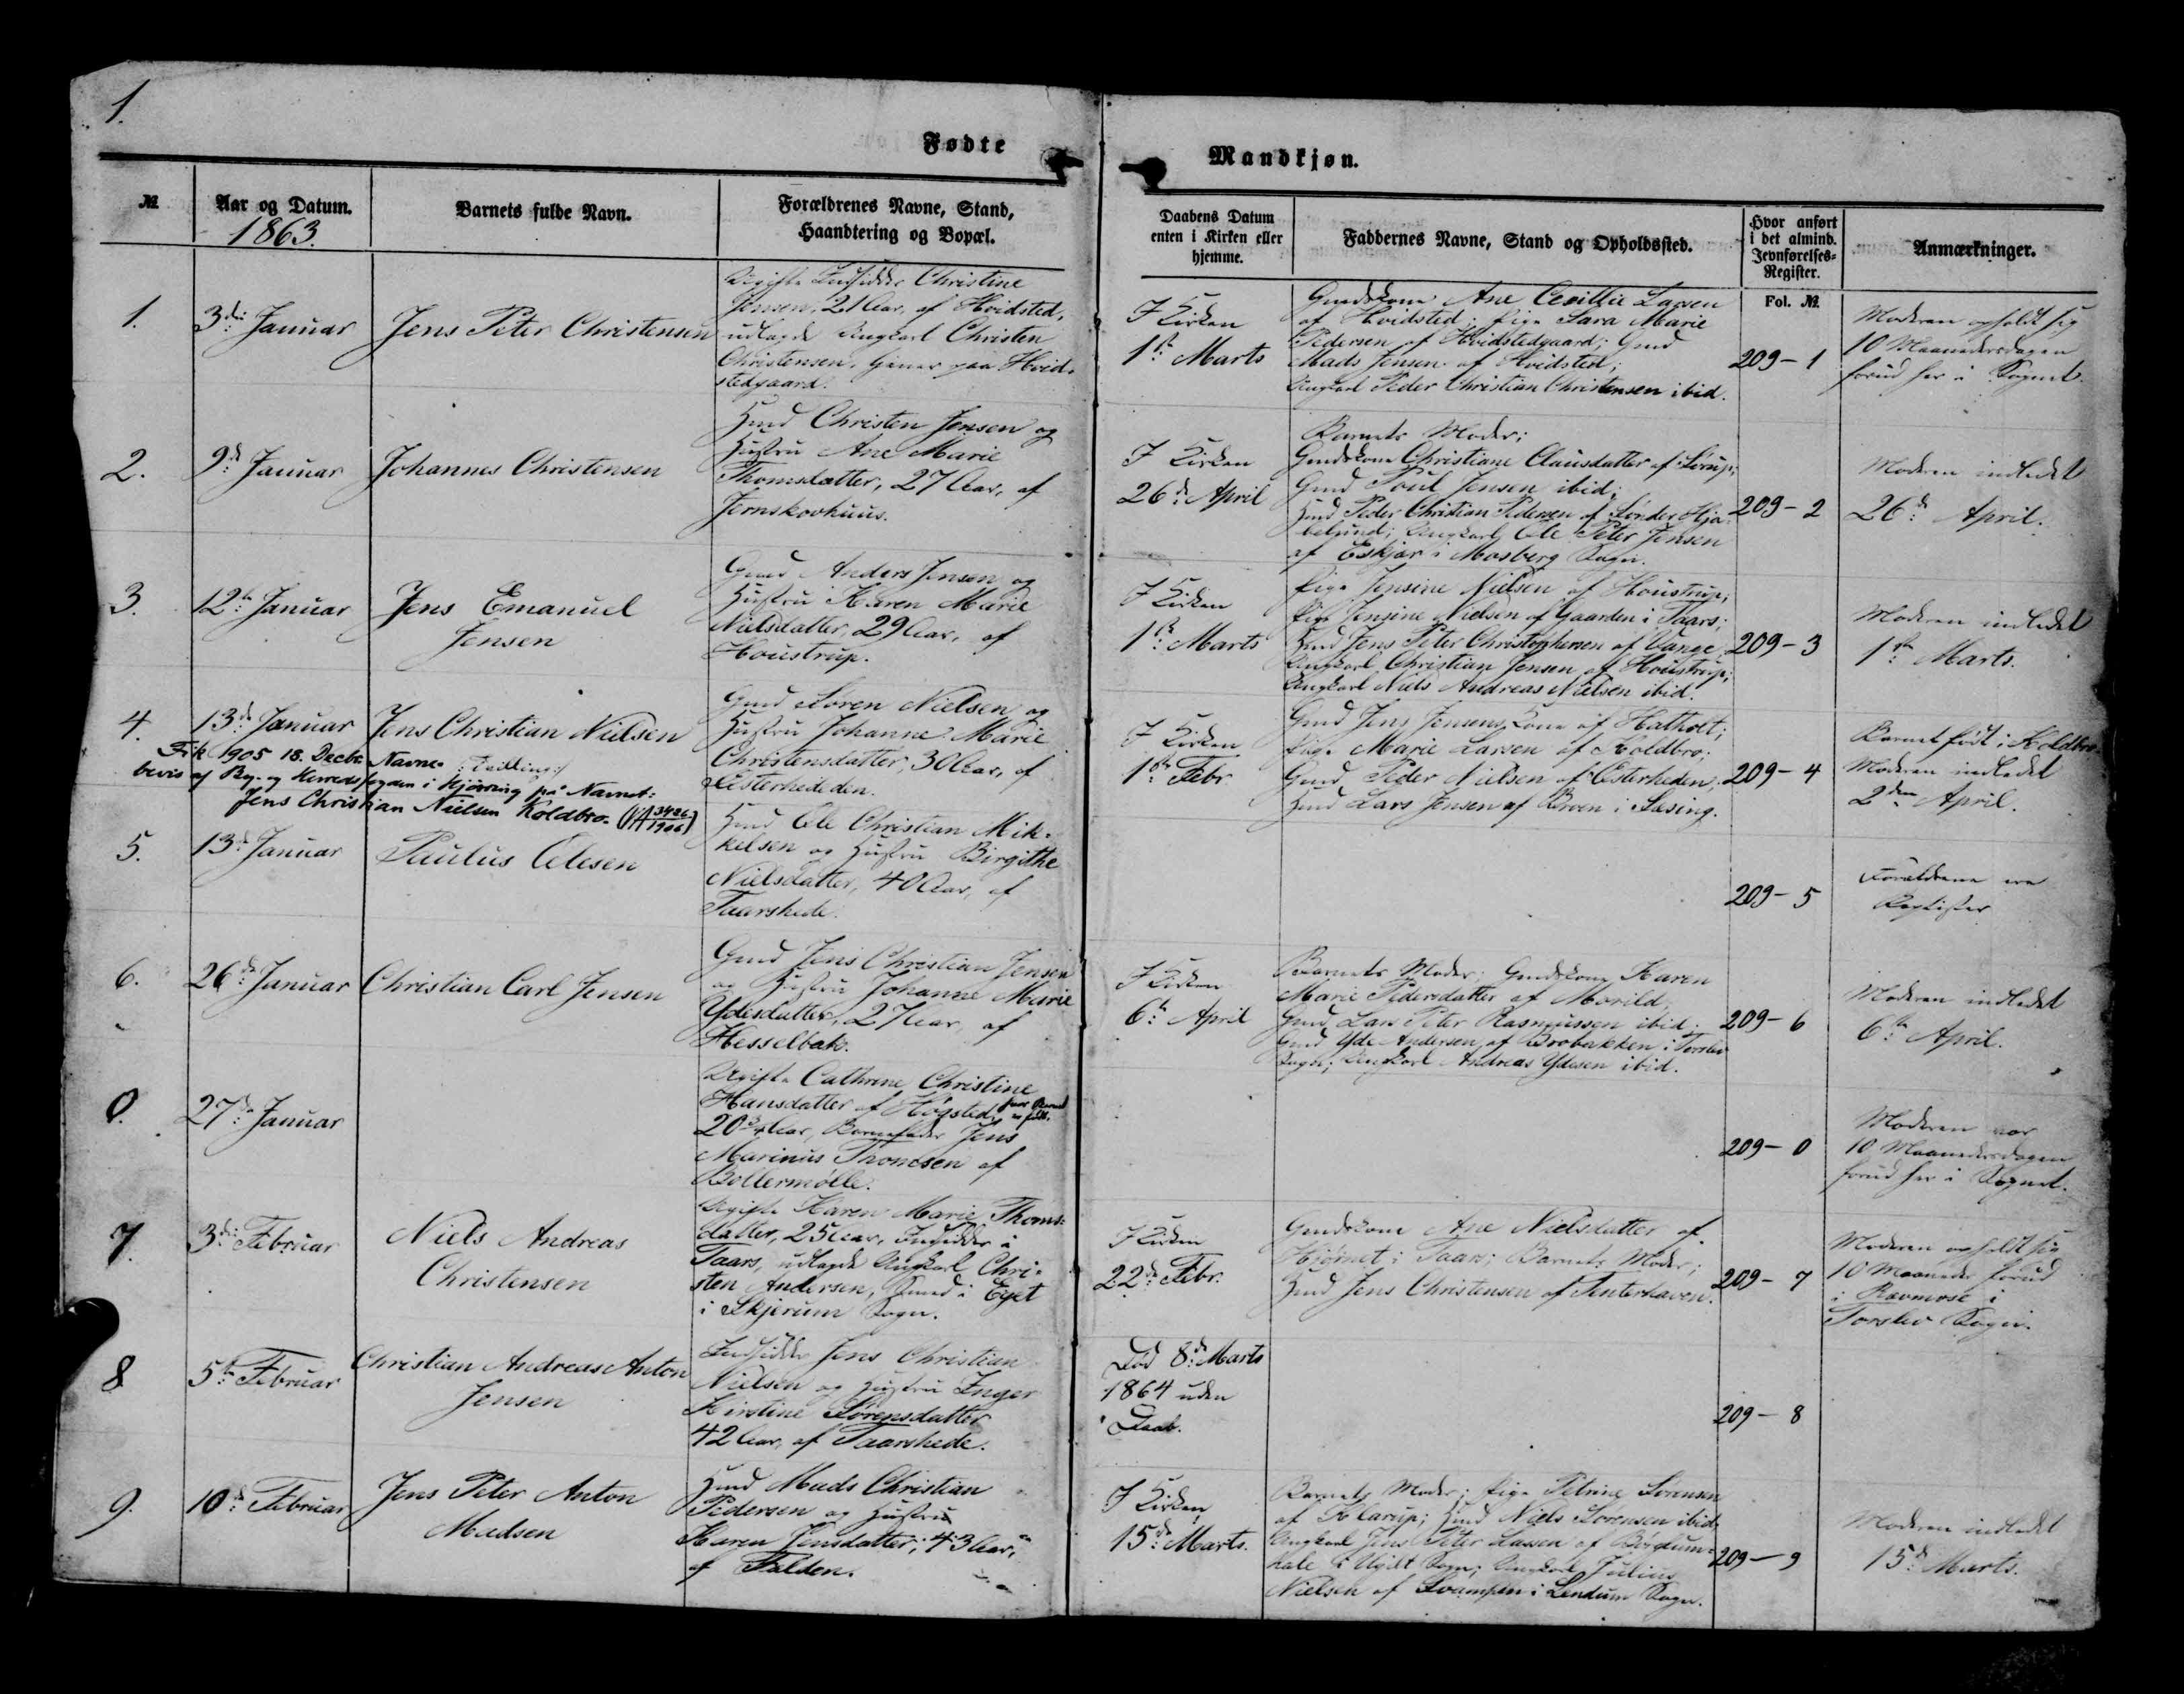 1.
Fødte
Mandkjøn.
№
Aar og Datum.
1863.
Barnets fulde Navn.
Forældrenes Navne, Stand,
Haandtering og Bopæl.
Daabens Datum
enten i Kirken eller
hjemme.
Faddernes Navne, Stand og Opholdssted.
Hvor anført
i det almind.
Jevnførelses-
Register.
Fol. №.
Anmærkninger.
1.
3die Januar
Jens Peter Christensen
Ugifte Indsidder Christine
Jensen, 21 Aar, af Hvidsted,
udlagde Ungkarl Christen
Christensen, tjener paa Hvid-
stedgaard.
I Kirken
1ste Marts
Gmdskone Ane Cecillie Larsen
af Hvidsted; Pige Sara Marie
Pedersen af Hvidstedgaard; Gmd
Mads Jensen af Hvidsted;
Ungkarl Peder Christian Christensen ibid.
209 - 1
Moderen opholdt sig
10 Maanedersdagen
forud her i Sognet.
2.
9de Januar
Johannes Christensen
Hmd Christen Jensen og
Hustru Ane Marie
Thomsdatter, 27 Aar, af
Jernskovhuus.
I Kirken
26de April
Barnets Moder;
Gmdskone Christiane Clausdatter af Sørup;
Gmd Poul Jensen ibid;
Hmd Peder Christian Pedersen af Sønder Hjø-
belund; Ungkarl Ole Peter Jensen
af Eskjær i Mosberg Sogn.
209 - 2
Moderen indledet
26de April.
3.
12te Januar
Jens Emanuel
Jensen
Gmd Anders Jensen og
Hustru Karen Marie
Nielsdatter, 29 Aar, af
Houstrup.
I Kirken
1ste Marts
Pige Jensine Nielsen af Houstrup;
Pige Jensine Nielsen af Gaarden i Taars;
Hmd Jens Peter Christophersen af Vange;
Ungkarl Christian Jensen af Houstrup;
Ungkarl Niels Andreas Nielsen ibid.
209 - 3
Moderen indledet
1ste Marts.
4.
13de Januar
Jens Christian Nielsen
: Tvilling:/
Fik 1905 18. Decbr. Navne-
bevis af By- og Herredsfogden i Hjørring på Navnet:
Jens Christian Nielsen Koldbro. (VA 3426/1906)
Gmd Søren Nielsen og
Hustru Johanne Marie
Christensdatter, 30 Aar, af
Østerhededen.
I Kirken
1ste Febr.
Gmd Jens Jensens Kone af Hatholt;
Pige Marie Larsen af Koldbro;
Gmd Peder Nielsen af Østerheden;
Hmd Lars Jensen af Broen i Sæsing.
209 - 4
Barnet født i Koldbro.
Moderen indledet
2den April.
5.
13de Januar
Paulus Olesen
Hmd Ole Christian Mik-
kelsen og Hustru Birgithe
Nielsdatter, 40 Aar, af
Taarshede.
209 - 5
Forældrene ere
Baptister
6.
26de Januar
Christian Carl Jensen
Gmd Jens Christian Jensen
og Hustru Johanne Marie
Ydesdatter, 27 Aar, af
Hesselbak.
I Kirken
6te April
Barnets Moder; Gmdskone Karen
Marie Pedersdatter af Morild;
Gmd Lars Peter Rasmussen ibid;
Gmd Yde Andersen af Brobakken i Torslev
Sogn; Ungkarl Andreas Ydesen ibid.
209 - 6
Moderen indledet
6te April.
0.
27de Januar
Ugifte Cathrine Christine
Hansdatter af Høgsted, hvor Barnet
er født.
20 Aar, Barnefader Jens
Marinus Thomsen af
Bøllermølle.
209 - 0
Moderen var
10 Maanedersdagen
forud her i Sognet.
7.
3die Februar
Niels Andreas
Christensen
Ugifte Karen Marie Thoms-
datter, 25 Aar, Indsidder i
Taars, udlagde Ungkarl Chri-
sten Andersen, Smed i Eget
i Skjerum Sogn.
I Kirken
22de Febr.
Gmdskone Ane Nielsdatter af
Hjørnet i Taars; Barnets Moder;
Hmd Jens Christensen af Tinterhaven.
209 - 7
Moderen opholdt sig
10 Maaneder forud
i Ravmose i
Torslev Sogn.
8
5te Februar
Christian Andreas Anton
Jensen
Indsidder Jens Christian
Nielsen og Hustru Inger
Kirstine Sørensdatter
42 Aar, af Taarshede.
Død 8de Marts
1864 uden
Daab.
209 - 8
9.
10de Februar
Jens Peter Anton
Madsen
Hmd Mads Christian
Pedersen og Hustru
Karen Jensdatter, 43 Aar,
af Falden.
I Kirken
15de Marts.
Barnets Moder; Pige Petrine Sørensen
af Klarup; Hmd Niels Sørensen ibid;
Ungkarl Jens Peter Lassen af Bøgdum-
hale i Ugilt Sogn; Ungkarl Julius
Nielsen af Svampen i Lendum Sogn.
209 - 9
Moderen indledet
15de Marts.